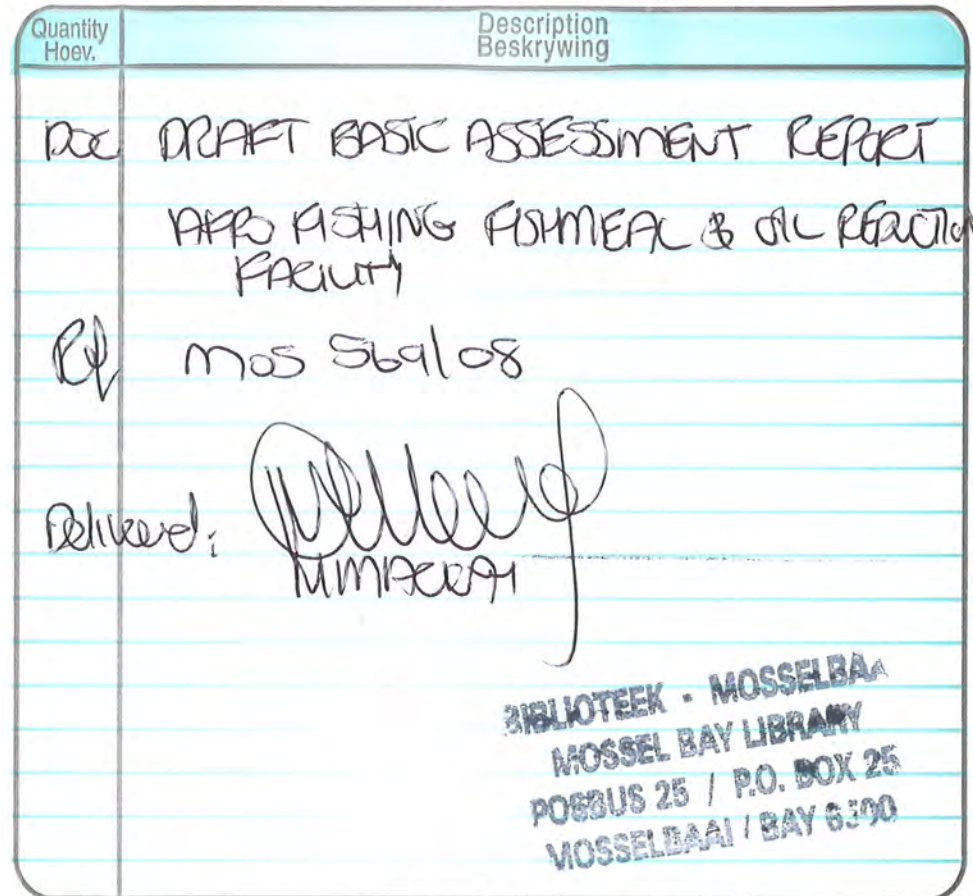 Quantity
Hoev.
Description
Beskrywing
DOC DRAFT BASIC ASSESSMENT REPORT
AFRO FISHING FISHMEAL & OIL REDUCTION
FACILITY
Ref MOS 569/08
Delivered:
BIBLIOTEEK - MOSSELBAAI
MOSSEL BAY LIBRARY
POSBUS 25 / P.O. BOX 25
MOSSELBAAI / BAY 6500